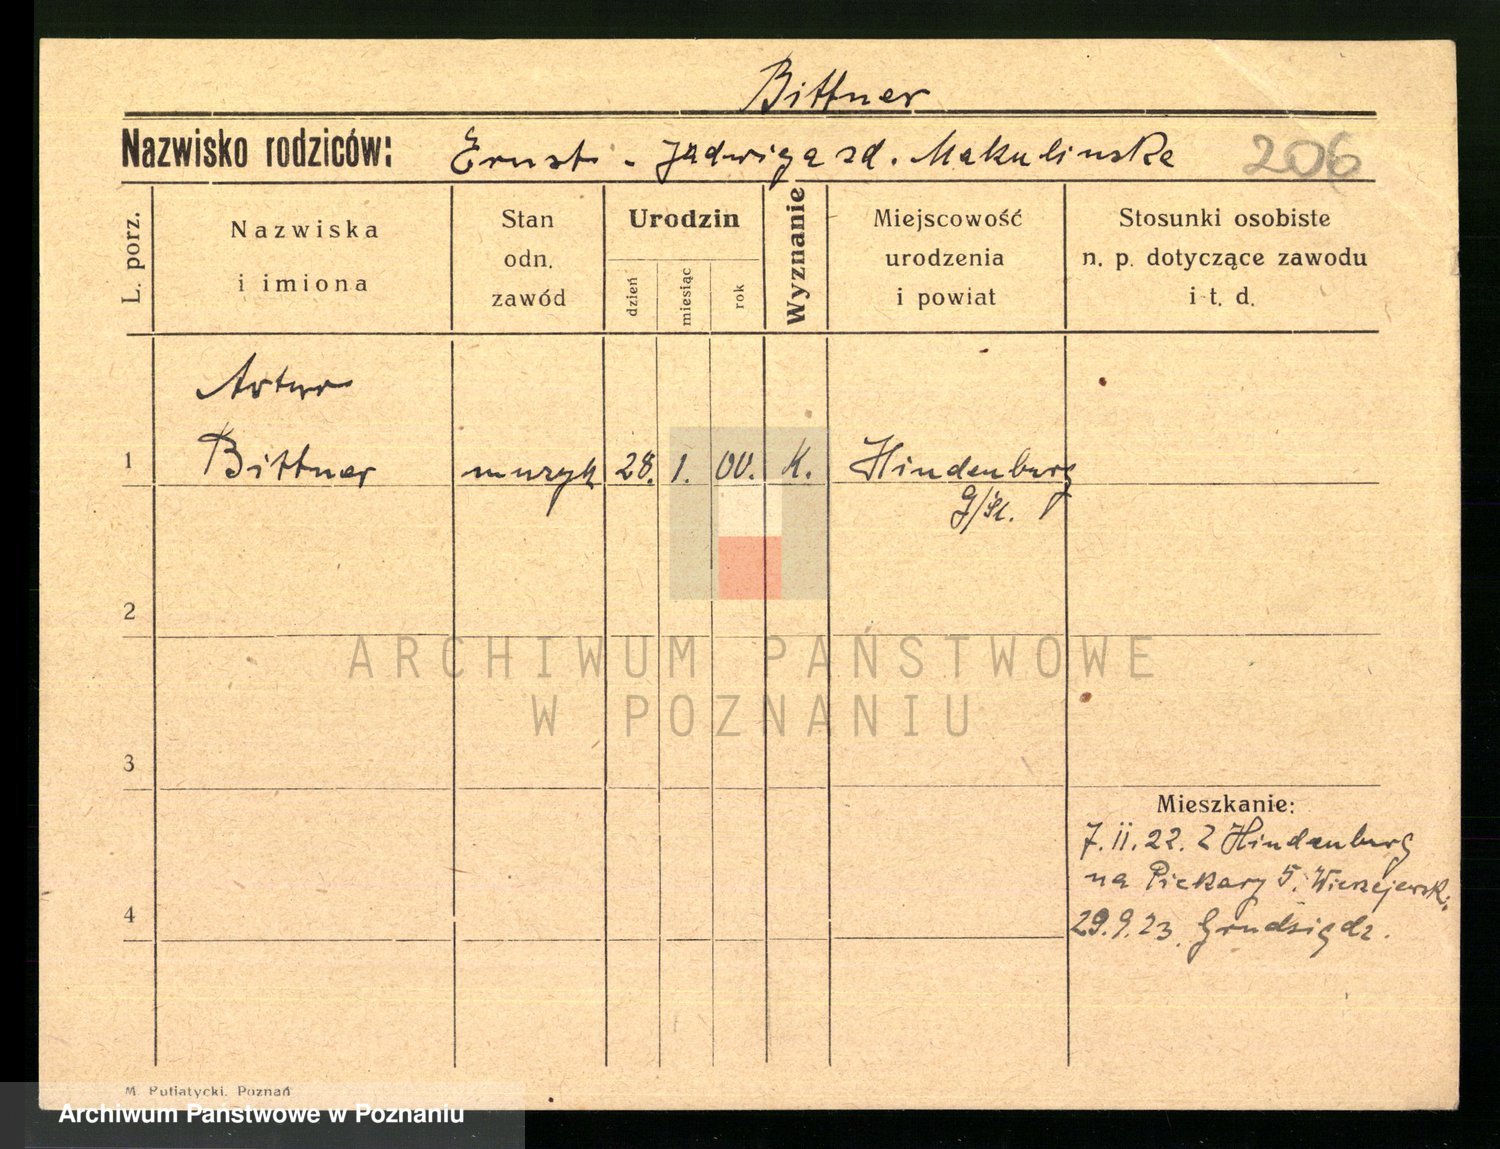 Bittner
Nazwisko rodziców: Ernst - Jadwiga zd. Makulinska 206
L. porz.
Nazwiska
i imiona
Stan
odn.
zawód
Urodzin
dzień
miesiąc
rok
Wyznanie
Miejscowość
urodzenia
i powiat
Stosunki osobiste
n. p. dotyczące zawodu
i t. d.
Artur
1 Bittner muzyk 28. 1. 00. K. Hindenburg
G/Sl.
2
ARCHIWUM PAŃSTWOWE
W POZNANIU
3
Mieszkanie:
7.II.22. Z Hindenburg
na Piekary 5. Wierzejewsk.
4
29.9.23. Grudziądz.
M. Putiatycki. Poznań
Archiwum Państwowe w Poznaniu